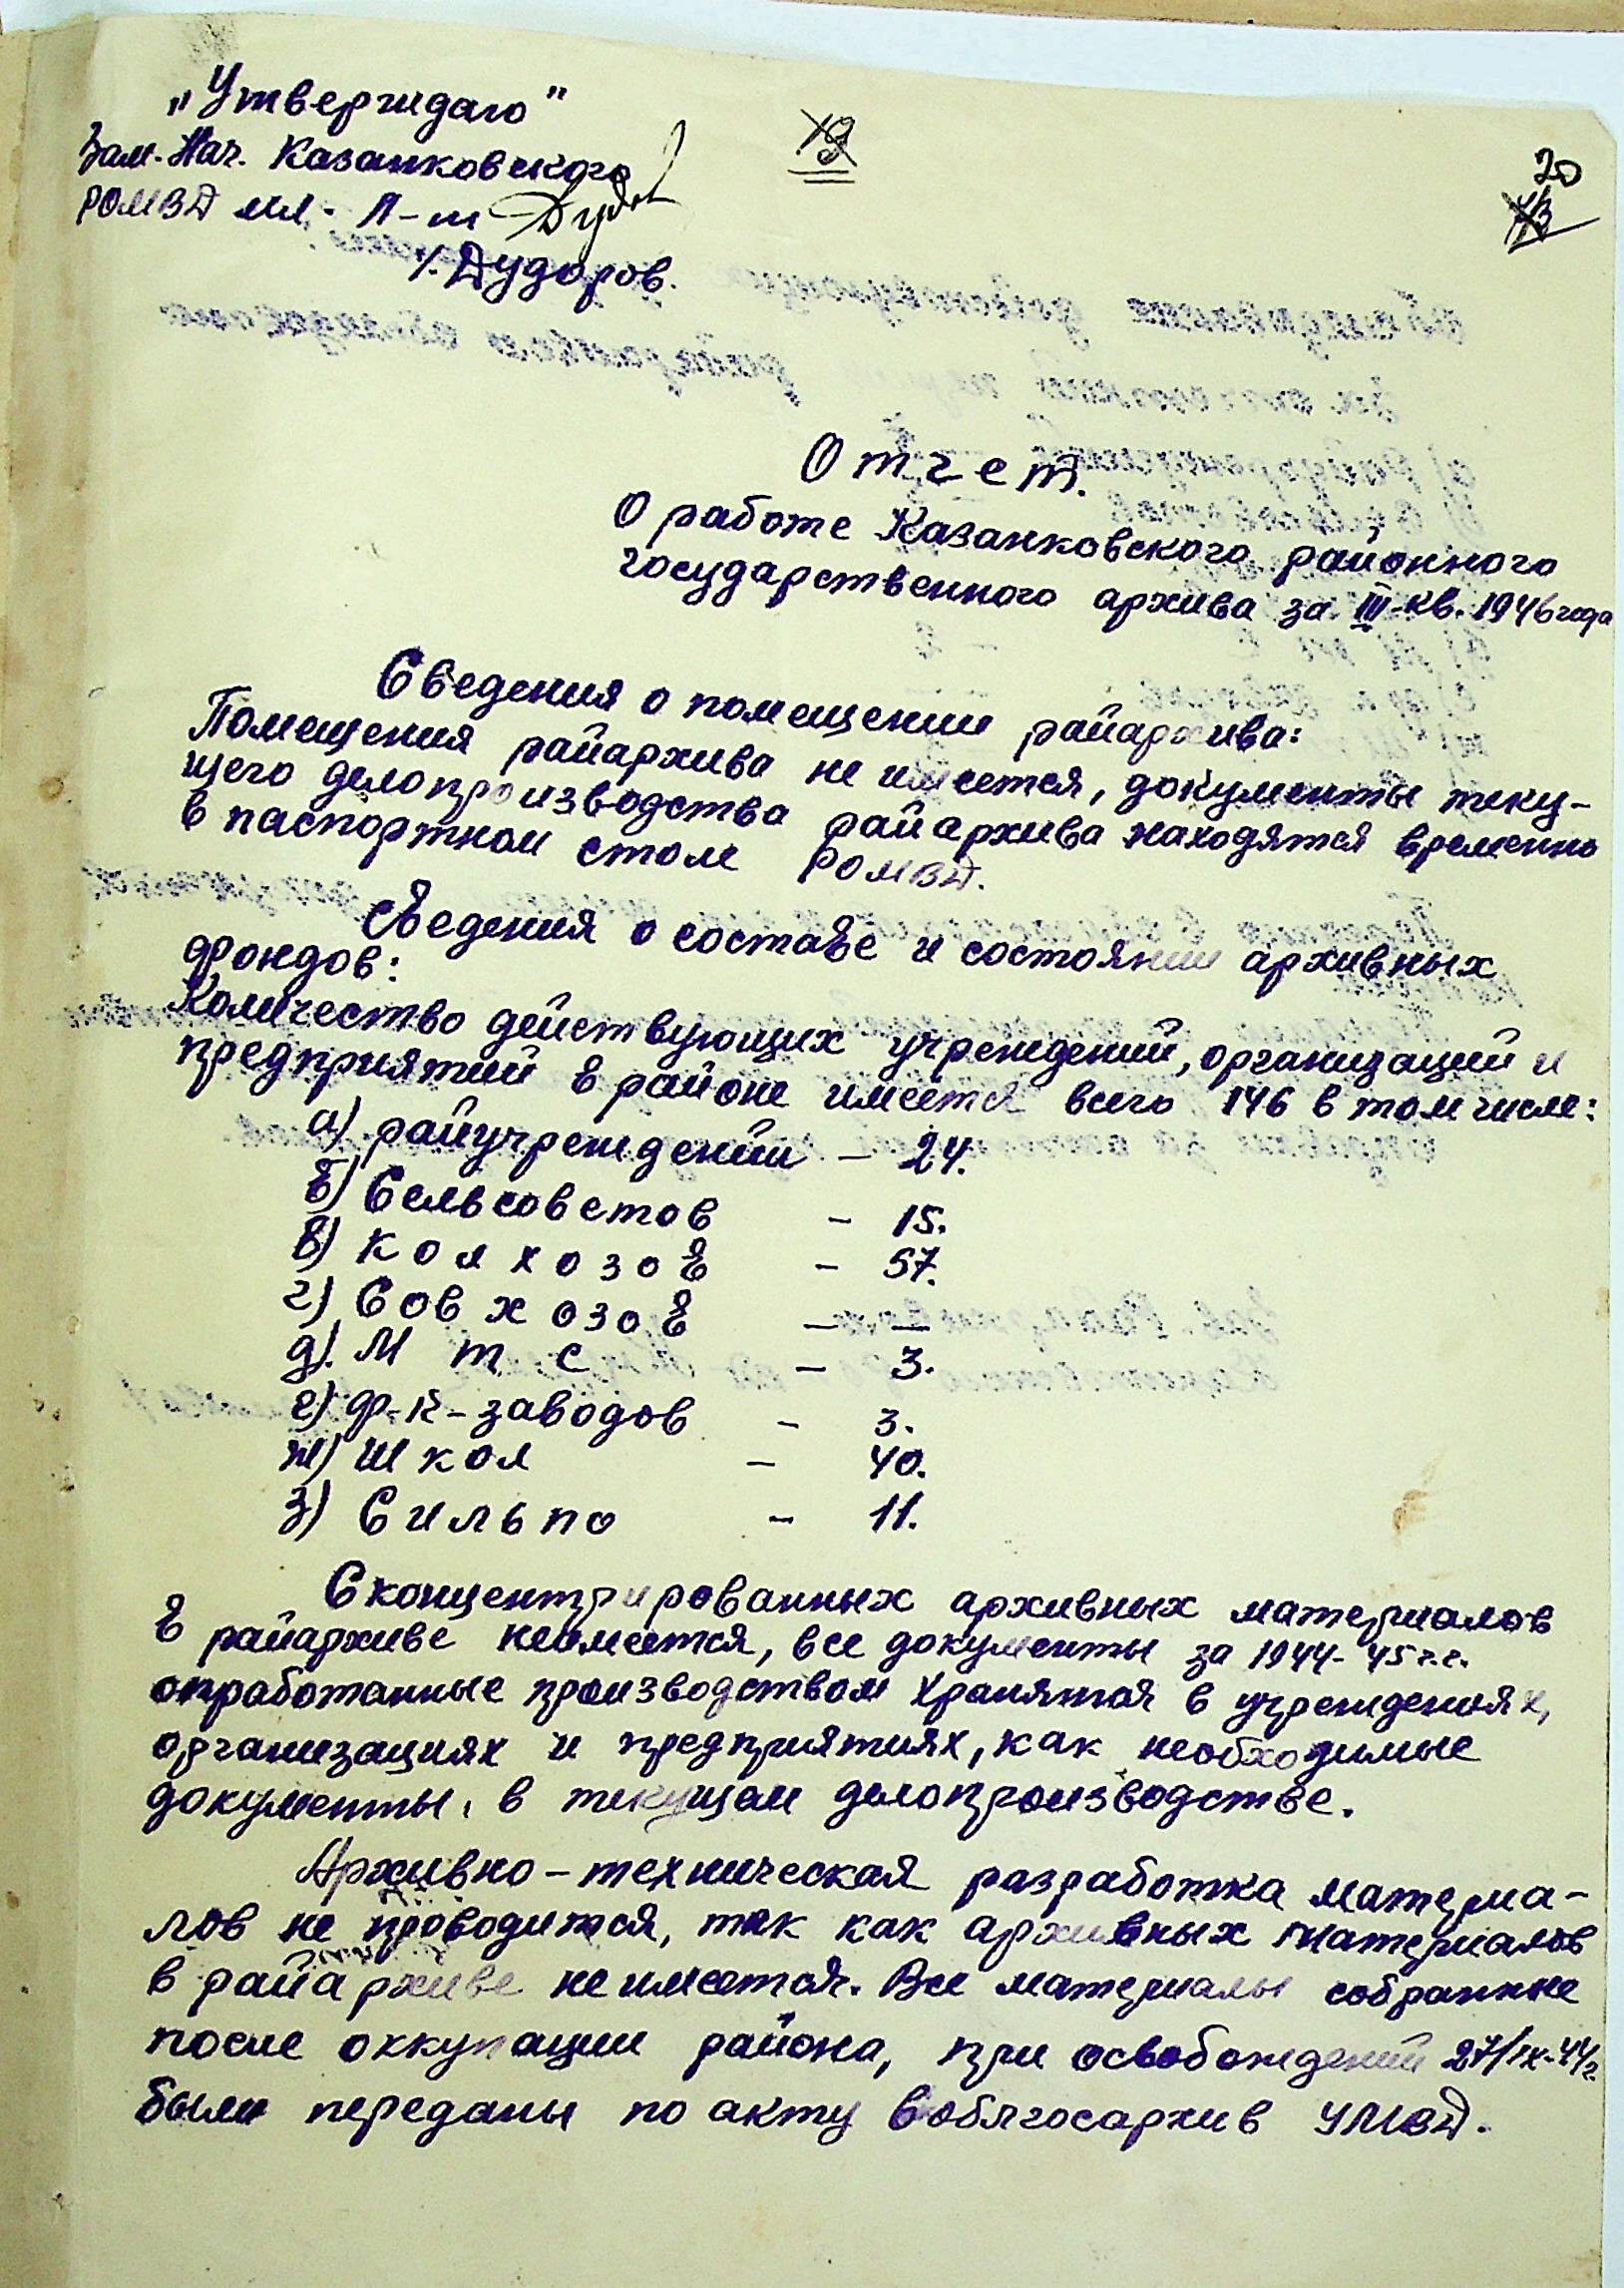 „Утверждаю"
Зам. Нач. Казанковского
РОМВД мл. Л-т
/. Дудоров.
19
20
Отчет.
О работе Казанковского районного
государственного архива за III-кв. 1946 года
Сведения о помещении райархива:
Помещения райархива не имеется, документы теку-
щего делопроизводства райархива находятся временно
в паспортном столе РОМВД.
Сведения о составе и состоянии архивных
фондов:
Количество действующих учреждений, организаций и
предприятий в районе имеется всего 146 в том числе:
а) райучреждений – 24.
б) Сельсоветов – 15.
в) Колхозов – 57.
г) Совхозов – —
д). М т с – 3.
е) ф-к-заводов – 3.
ж) школ – 40.
з) Сильпо – 11.
Сконцентрированных архивных материалов
в райархиве неимеется, все документы за 1944-45 г.г.
отработанные производством хранятся в учреждениях,
организациях и предприятиях, как необходимые
документы, в текущем делопроизводстве.
Архивно-техническая разработка материа-
лов не проводится, так как архивных материалов
в райархиве не имеется. Все материалы собранные
после оккупации района, при освобождений 27/IX-44г.
были переданы по акту в облгосархив УМВД.